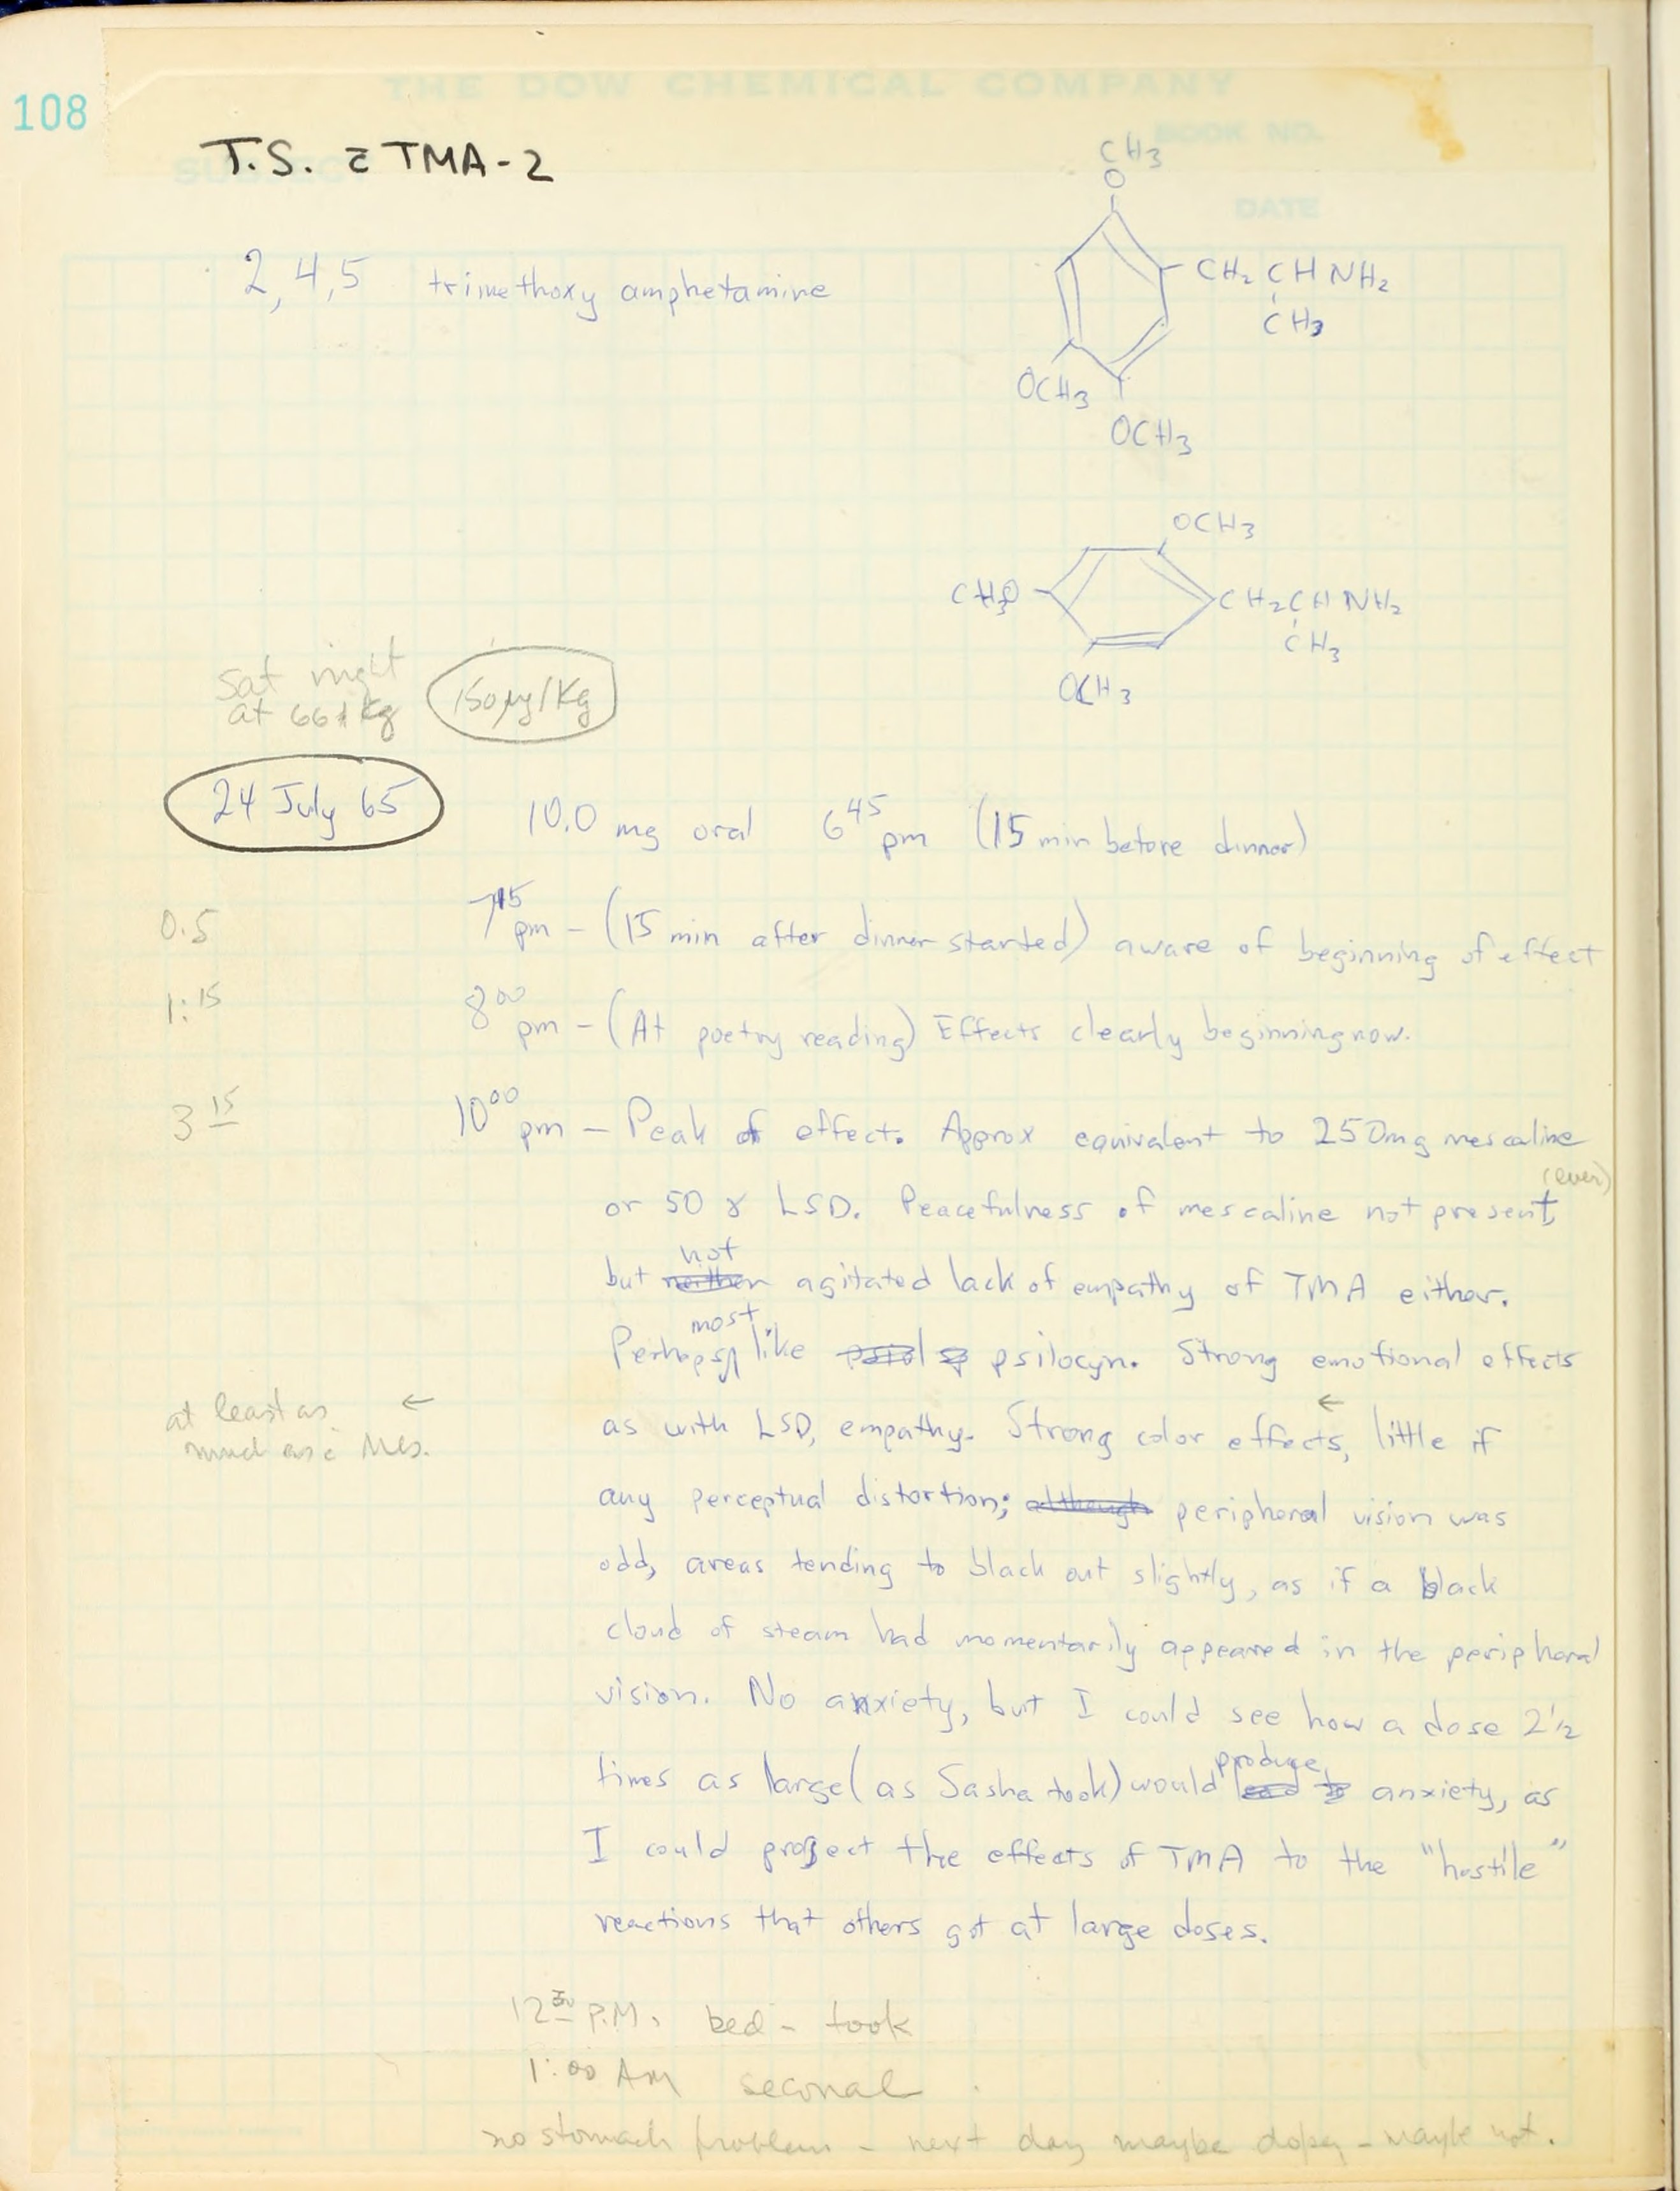 THE DOW CHEMICAL COMPANY
108
BOOK NO.
SUBJECT
DATE
T.S. c̄ TMA-2
2,4,5 trimethoxy amphetamine
CH3
O
CH2 CH NH2
CH3
OCH3
OCH3
OCH3
CH3O
CH2CH NH2
CH3
OCH3
Sat night
at 66 kg
150 µg/Kg
24 July 65
10.0 mg oral 6 45 pm (15 min before dinner)
0.5 7 15 pm - (15 min after dinner started) aware of beginning of effect
1:15 8 00 pm - (At poetry reading) Effects clearly beginning now.
3 15 10 00 pm - Peak of effect. Approx equivalent to 250mg mescaline
(ever)
or 50 γ LSD. Peacefulness of mescaline not present,
not
but neither agitated lack of empathy of TMA either.
most
Perhaps like psilocyn. Strong emotional effects
←
at least as ←
much as c̄ Mes.
as with LSD, empathy. Strong color effects, little if
any perceptual distortion; although peripheral vision was
odd, areas tending to black out slightly, as if a black
cloud of steam had momentarily appeared in the peripheral
vision. No anxiety, but I could see how a dose 2 1/2
produce
times as large (as Sasha took) would lead to anxiety, as
I could project the effects of TMA to the "hostile"
reactions that others got at large doses.
12 30 P.M. bed - took
1:00 AM seconal
no stomach problem - next day maybe dopey - maybe not.